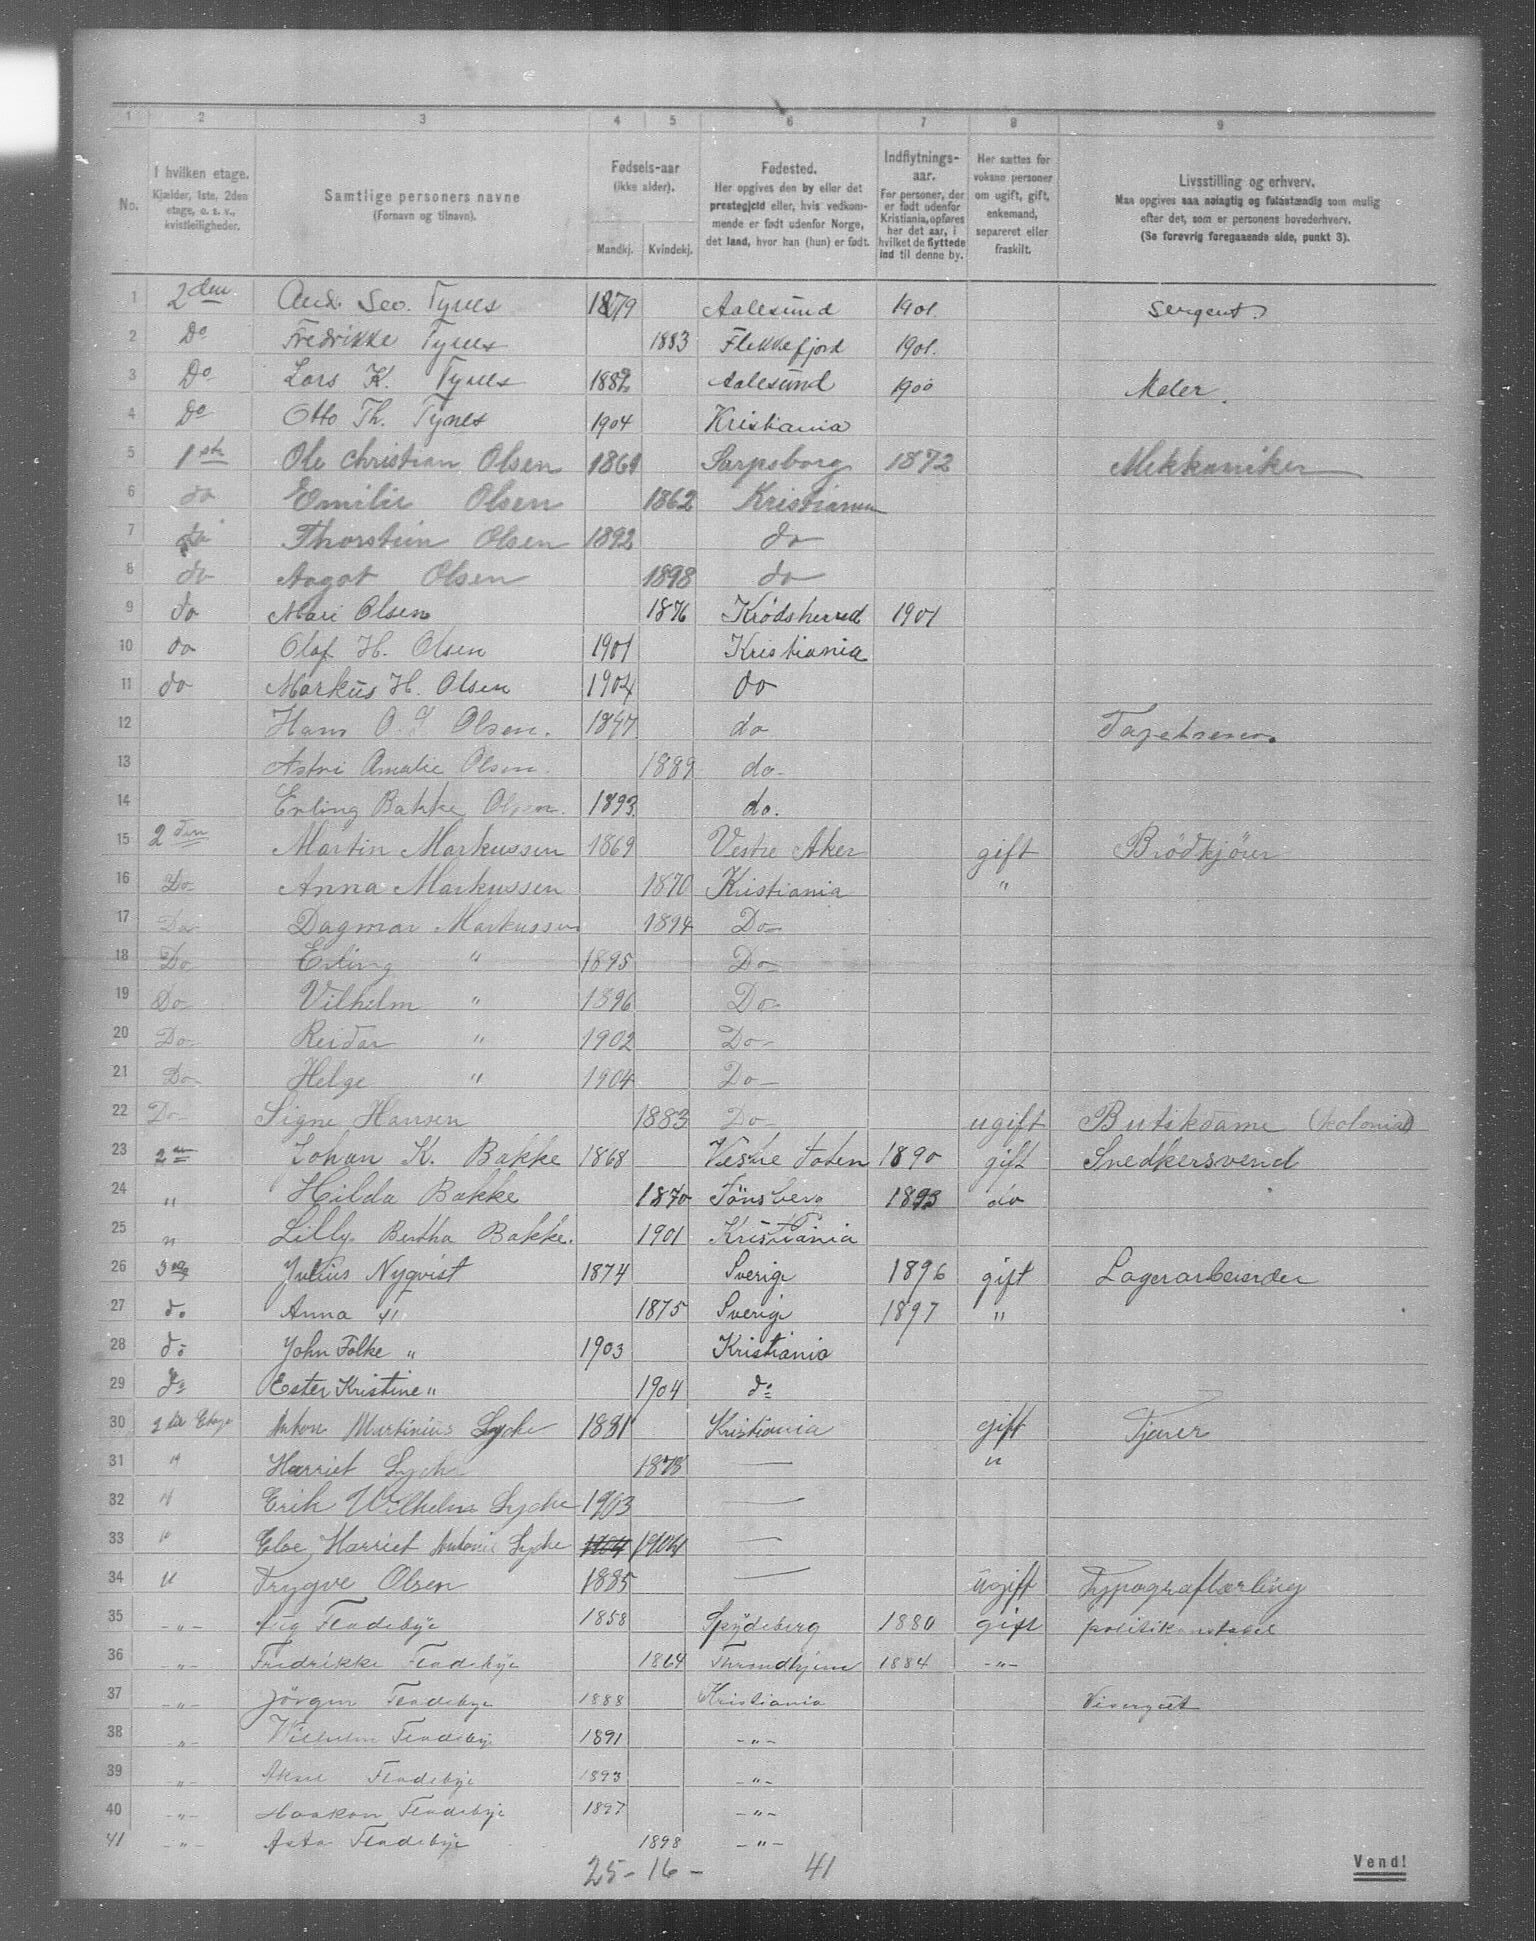 1 2 3 4 5 6 7 8 9
No. I hvilken etage. Kjælder, 1ste, 2den etage, o. s. v., kvistleiligheder. Samtlige personers navne (Fornavn og tilnavn). Fødsels-aar (ikke alder). Mandkj. Kvindekj. Fødested. Her opgives den by eller det prestegjeld eller, hvis vedkommende er født udenfor Norge, det land, hvor han (hun) er født. Indflytnings-aar. For personer, der er født udenfor Kristiania, opføres her det aar, i hvilket de flyttede ind til denne by. Her sættes for voksne personer om ugift, gift, enkemand, separeret eller fraskilt. Livsstilling og erhverv. Maa opgives saa nøiagtig og fuldstændig som mulig efter det, som er personens hovederhverv. (Se forøvrig foregaaende side, punkt 3).
1 2den Tynes 1879 Aalesund 1901. Sergent.
2 Do Fredrikke Tynes 1883 Flekkefjord 1901.
3 Do Lars K. Tynes 1882 Aalesund 1900 Maler.
4 do Otto Th. Tynes 1904 Kristiania
5 1ste Ole Christian Olsen 1861 Sarpsborg 1872 Mekkaniker
6 do Emilie Olsen 1862 Kristiania
7 do Thorstein Olsen 1892 do
8 do Aagot Olsen 1898 do
9 do Mari Olsen 1876 Krödsherred 1901
10 do Olaf H. Olsen 1901 Kristiania
11 do Markus H. Olsen 1904 do
12 Hans O. Olsen. 1847 do
13 Astri Amalie Olsen. 1889 do-
14 Erling Bakke Olsen. 1893. do.
15 2den Martin Markussen 1869 Vestre Aker gift Brödkjörer
16 Do Anna Markussen 1870 Kristiania "
17 Do- Dagmar Markussen 1894 Do-
18 Do Erling " 1895 Do-
19 Do- Vilhelm " 1896 Do-
20 Do- Reidar " 1902 Do-
21 Do- Helge " 1904 Do-
22 Do- Signe Hansen 1883 Do- ugift Butikdame (kolonial)
23 2en Johan K. Bakke 1868 Vestre Toten 1890 gift Snedkersvend
24 " Hilda Bakke 1870 Tönsberg 1893 do
25 " Lilly Bertha Bakke. 1901 Kristiania
26 Julius Nyqvist 1874 Sverige 1896 gift Lagerarbeider
27 do Anna " 1875 Sverige 1897 "
28 do John Folke " 1903 Kristiania
29 do Ester Kristine " 1904 do
30 Anton Martinius Lyche 1881 Kristiania gift Tjener
31 " Harriet Lyche 1878 — "
32 " Erik Wilhelm Lyche 1903 —
33 " Harriet Antonie Lyche 1904 1904 —
34 " Trygve Olsen 1885 — ugift Typograflærling
35 -"- Aug Fladebye 1858 Spydeberg 1880 gift politikonstabel
36 -"- Fredrikke Fladebye 1864 Throndhjem 1884 -"-
37 -"- Jörgen Fladebye 1888 Kristiania Visergut
38 -"- Wilhelm Fladebye 1891 -"-
39 -"- Aksel Fladebye 1893 -"-
40 -"- Haakon Fladebye 1897 -"-
41 -"- Asta Fladebye 1898 -"-
25 - 16 - 41
Vend!